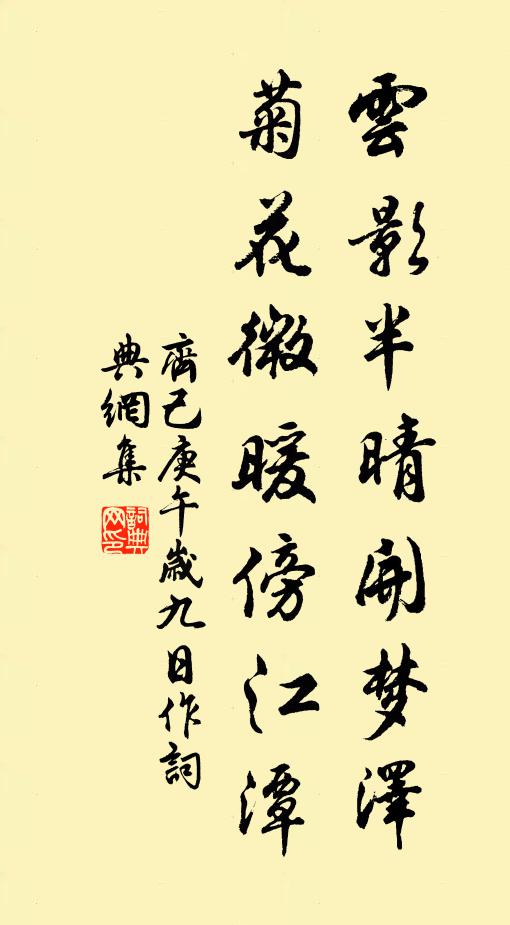 雲影半晴開梦澤
菊花微暖傍江潭
齊己庚午歲九日作詞
典網集
詞典
网印